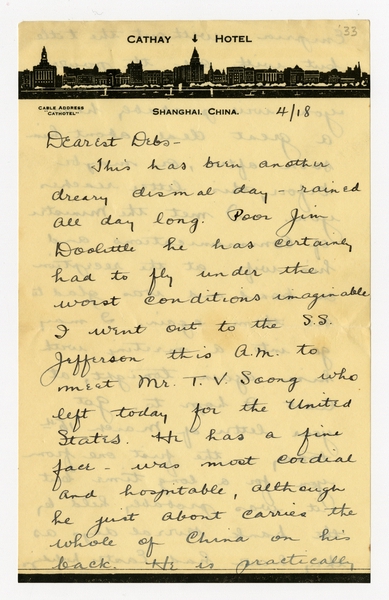 '33
CATHAY HOTEL
CABLE ADDRESS
"CATHOTEL"
SHANGHAI, CHINA.
4/18
Dearest Debs-
This has been another
dreary dismal day - rained
all day long. Poor Jim
Doolittle he has certainly
had to fly under the
worst conditions imaginable
I went out to the S.S.
Jefferson this A.M. to
meet Mr. T. V. Soong who
left today for the United
States. He has a fine
face - was most cordial
and hospitable, although
he just about carries the
whole of China on his
back. He is practically